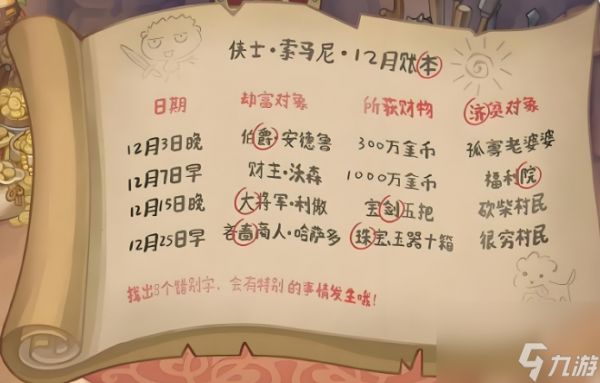 侠士·索马尼·12月账本
日期 劫富对象 所获财物 济贫对象
12月3日晚 伯爵·安德鲁 300万金币 孤寡老婆婆
12月7日早 财主·沃森 1000万金币 福利院
12月15日晚 大将军·利傲 宝剑五把 砍柴村民
12月25日早 吝啬商人·哈萨多 珠宝玉器十箱 很穷村民
找出8个错别字，会有特别的事情发生哦！
九游